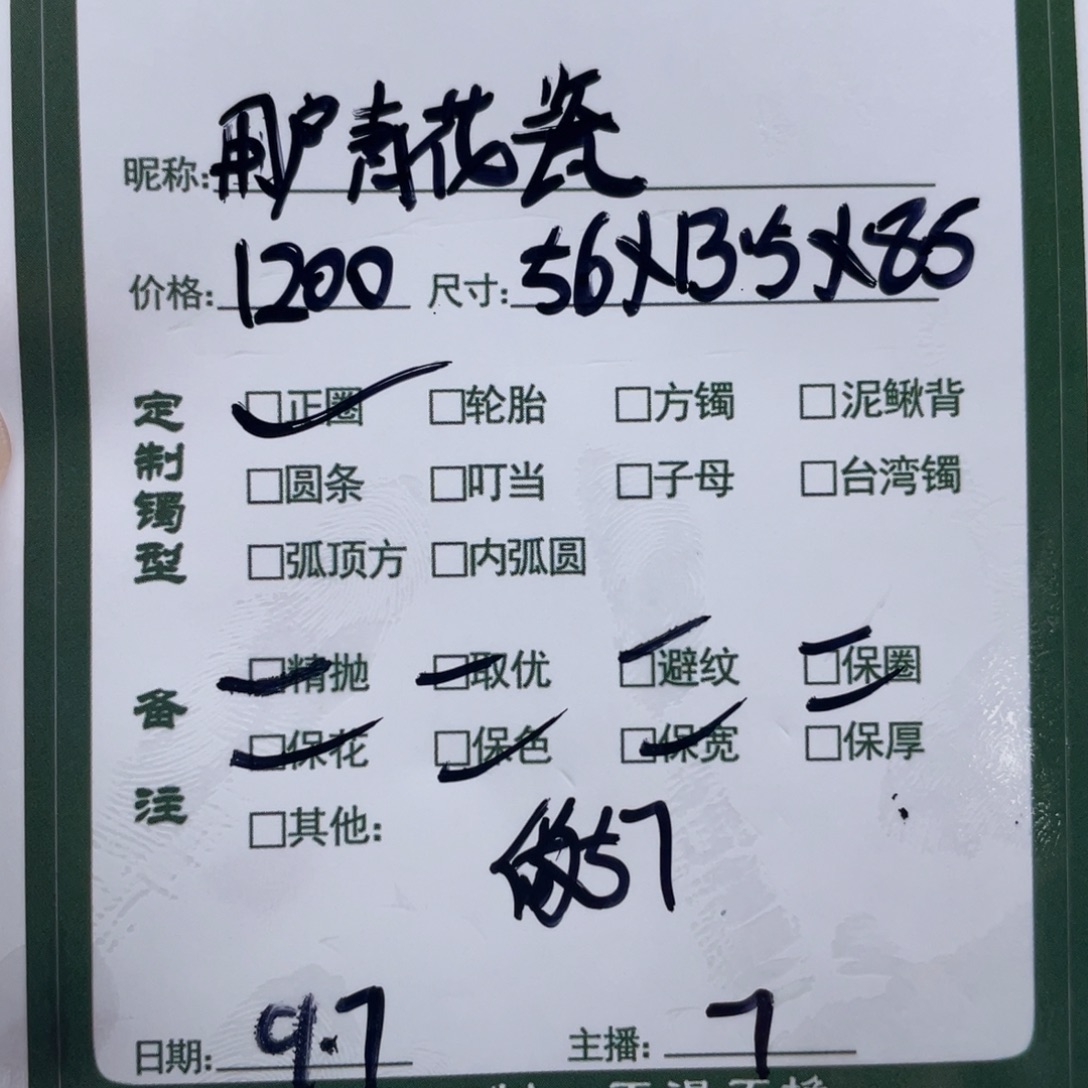 昵称:用户青花瓷
价格:1200 尺寸:56X135X85
定制镯型
□正圈 □轮胎 □方镯 □泥鳅背
□圆条 □叮当 □子母 □台湾镯
□弧顶方 □内弧圆
备注
□精抛 □取优 □避纹 □保圈
□保花 □保色 □保宽 □保厚
□其他: 做57
日期:9.7 主播:7